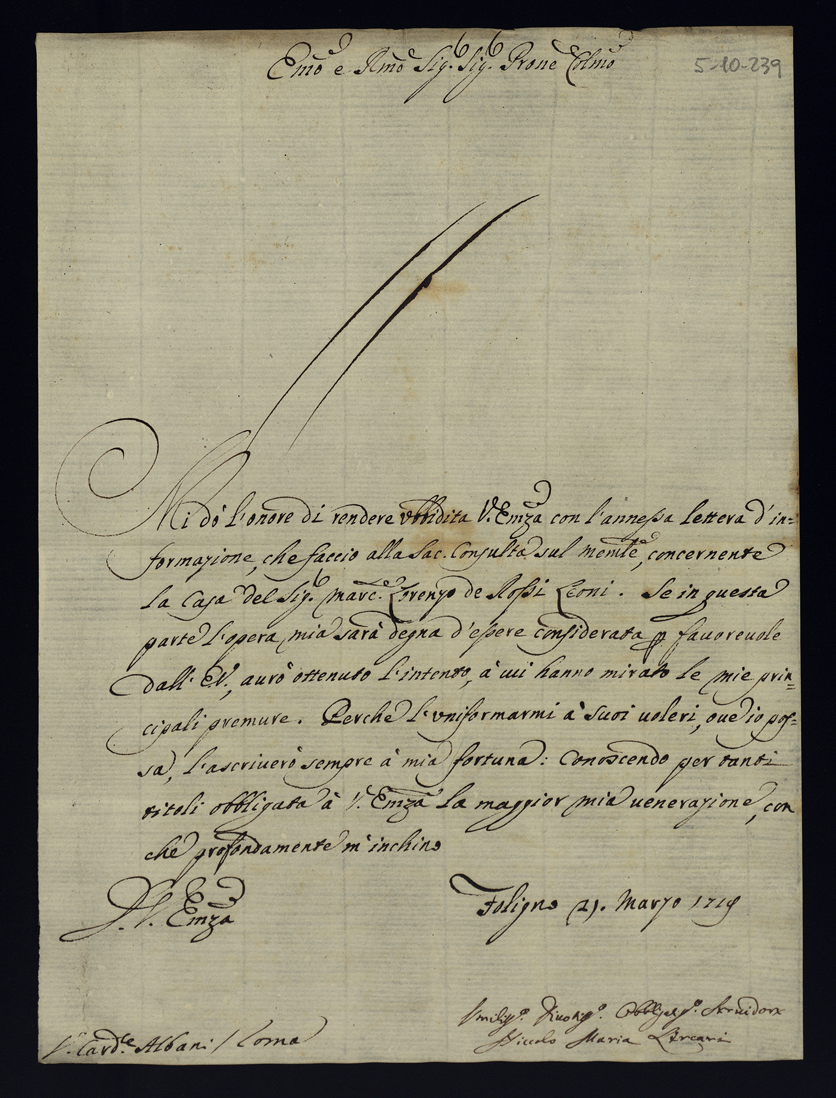 Emo e Rmo Sig. Sig. Prone Colmo
5-10-239
Mi do l'onore di rendere ubbidita V. Emza con l'annessa lettera d'in=
formazione, che faccio alla Sac. Consulta sul memle, concernente
la Casa del Sig. Marc. Lorenzo de Rossi Leoni. Se in questa
parte l'opera mia sarà degna d'essere considerata favorevole
dall' EV, aurò ottenuto l'intento, à cui hanno mirato le mie prin=
cipali premure. Perche l'uniformarmi à suoi uoleri, oue io pos=
sa, l'ascriuerò sempre à mia fortuna: Conoscendo per tanti
titoli obbligata à V. Emza la maggior mia uenerazione, con
che profondamente m'inchino
D. V. Emza
Foligno 21. Marzo 1719
Umiliss. Diuotiss. Obbligatss. Seruidore
Niccolo Maria Lercari
Card.le Albani / Roma